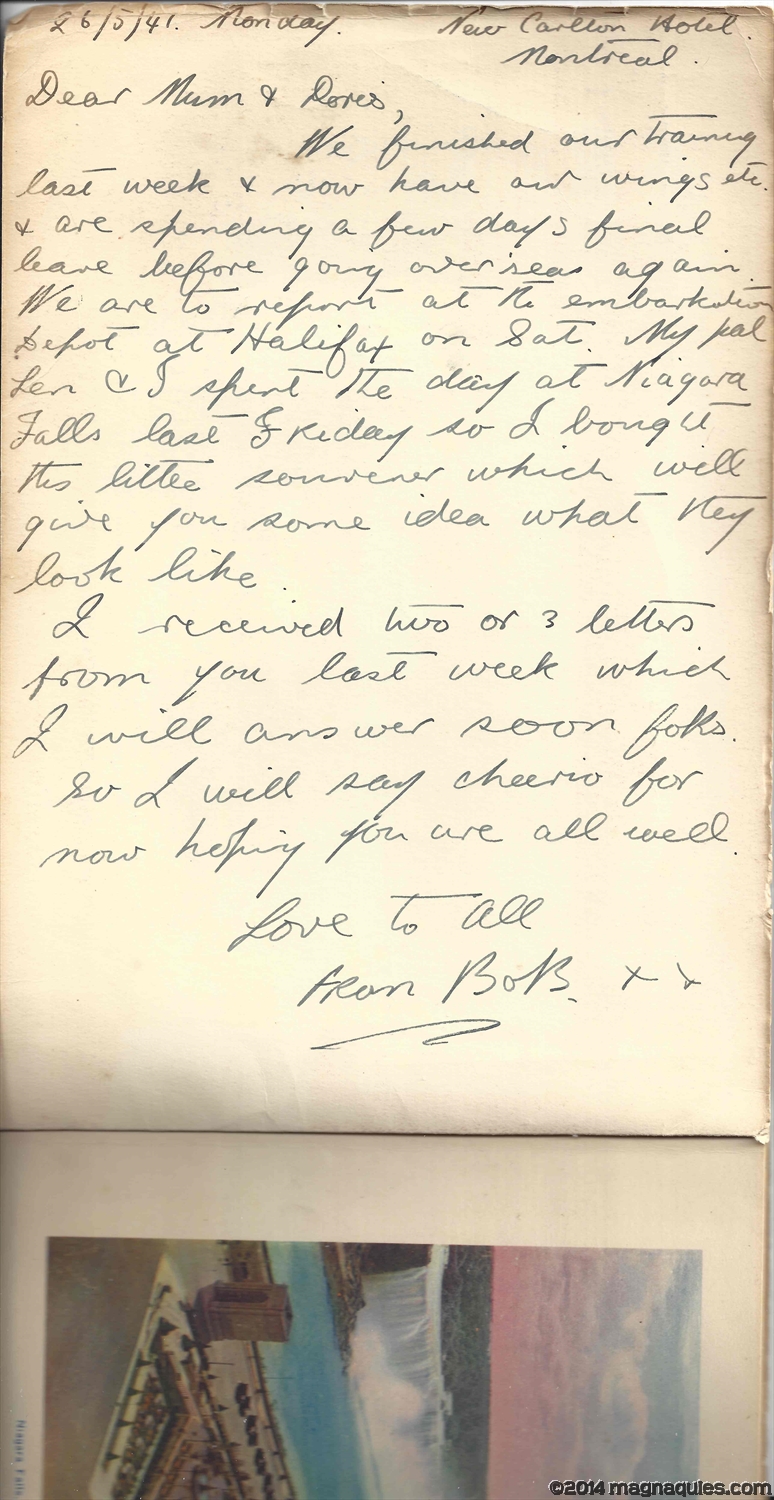 26/5/41. Monday. New Carlton Hotel.
Montreal.
Dear Mum & Doris,
We finished our training
last week & now have our wings etc.
& are spending a few days final
leave before going overseas again.
We are to report at the embarkation
Depot at Halifax on Sat. My pal
Len & I spent the day at Niagara
Falls last Friday so I bought
this little souvenir which will
give you some idea what they
look like.
I received two or 3 letters
from you last week which
I will answer soon foks.
So I will say cheerio for
now hoping you are all well.
Love to All
From BoB. x x
Niagara Falls
©2014 magnaquies.com